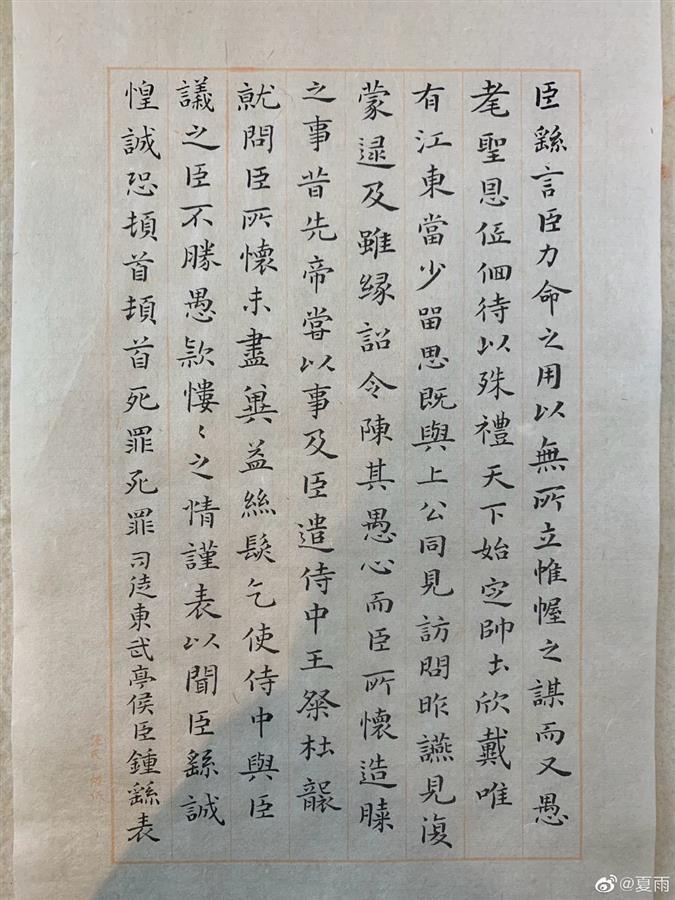 臣繇言臣力命之用以無所立帷幄之謀而又愚
耄聖恩低佪待以殊禮天下始定帥土欣戴唯
有江東當少留思既與上公同見訪問昨讌見復
蒙逮及雖緣詔令陳其愚心而臣所懷造膝
之事昔先帝嘗以事及臣遣侍中王粲杜襲
就問臣所懷未盡冀益絲髮乞使侍中與臣
議之臣不勝愚款慺々之情謹表以聞臣繇誠
惶誠恐頓首頓首死罪死罪司徒東武亭侯臣鍾繇表
@夏雨